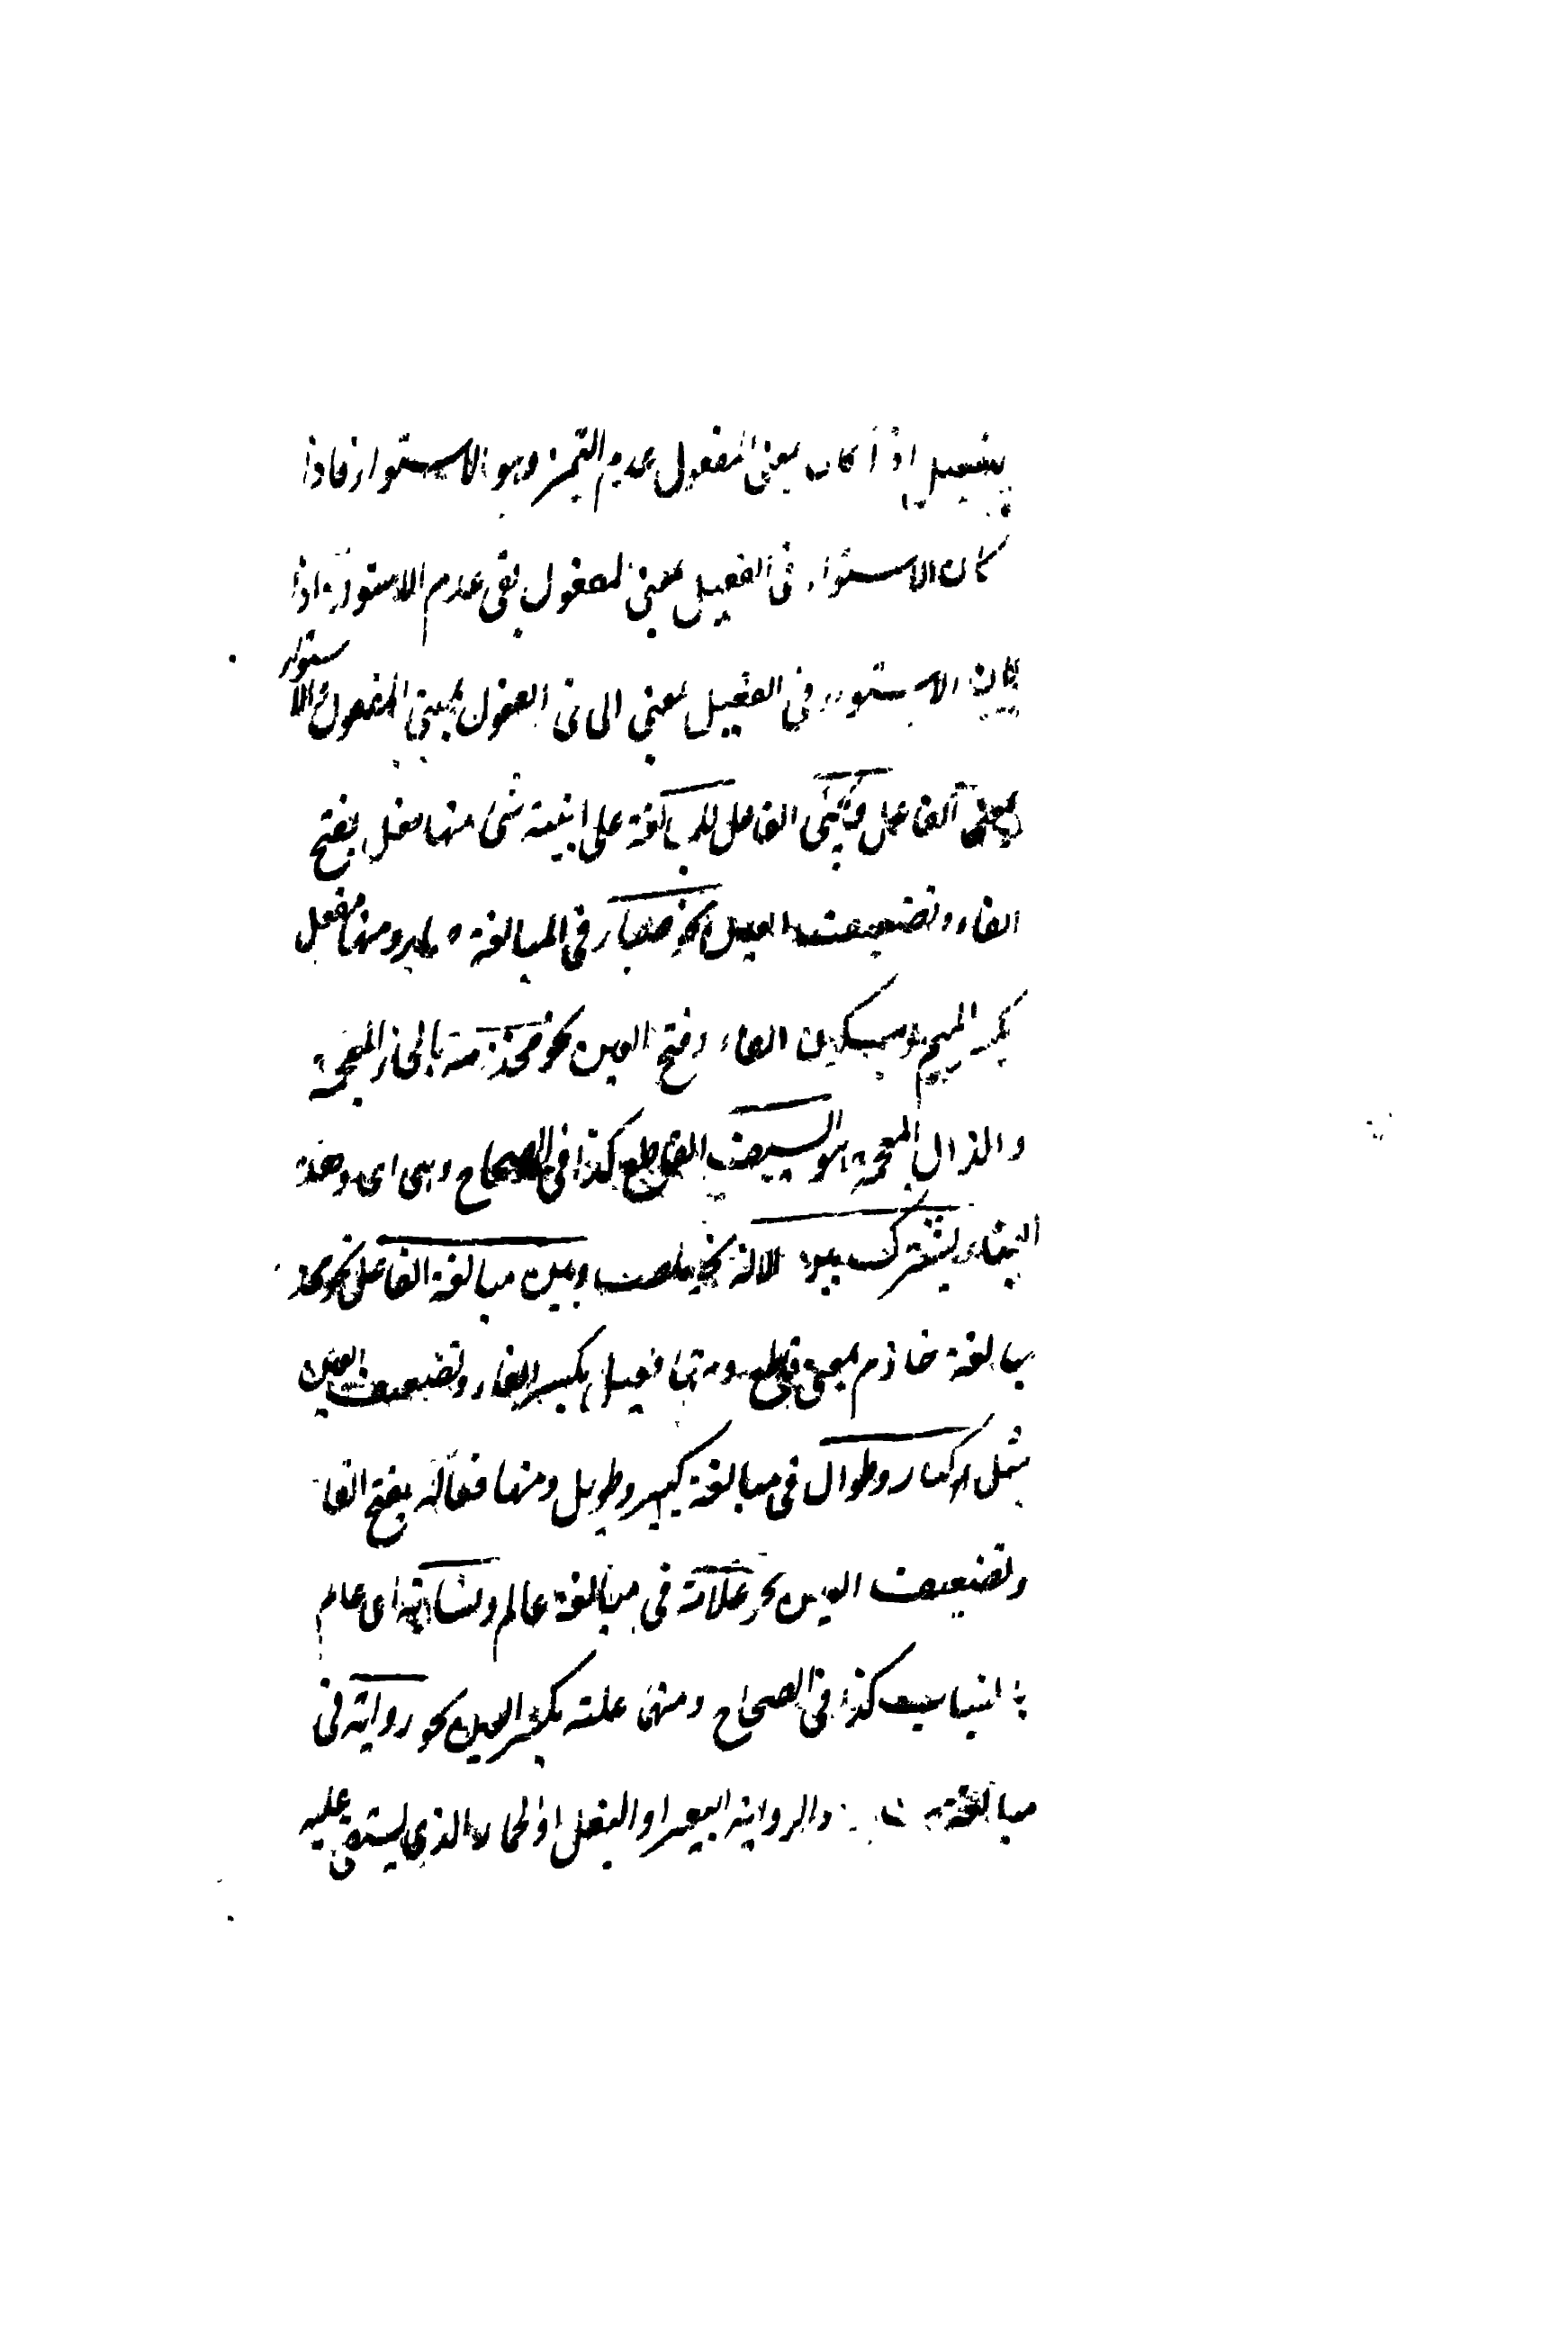 بفعيل اذا كان بمعنى المفعول عديم التميز وهو الاستواء فاذا
كان الاستواء فى الفعيل بمعنى المفعول بقى عدم الاستواء اذا
كان الاستواء فى الفعيل بمعنى الى فى الفعول بمعنى المفعول الاستواء
بمعنى الفاعل ويجئ الفاعل للمبالغة على ابنية شئ منها فعل بفتح
الفاء وتضعيف العين نحو صبار فى المبالغة ومنها مفعل
بكسر الميم وسكون الفاء وفتح العين نحو مخذمة بالخاء المعجمة
والذال المعجمة هو السيف القاطع كذا فى الصحاح وهى اى وهذه
البناء يشترك بين الالة وبين مبالغة الفاعل نحو مخذ
مبالغة خاذم بمعنى قاطع ومنها فعيل بكسر الفاء وتضعيف العين
مثل كبار وطوال فى مبالغة كبير وطويل ومنها فعالة بفتح الفا
وتضعيف العين نحو علامة فى مبالغة عالم ونسابة اى عالم
بانساب كذا فى الصحاح ومنها علته بكسر العين نحو رواية فى
مبالغة والرواية البعير او البغل او الحمار الذى يستقى عليه